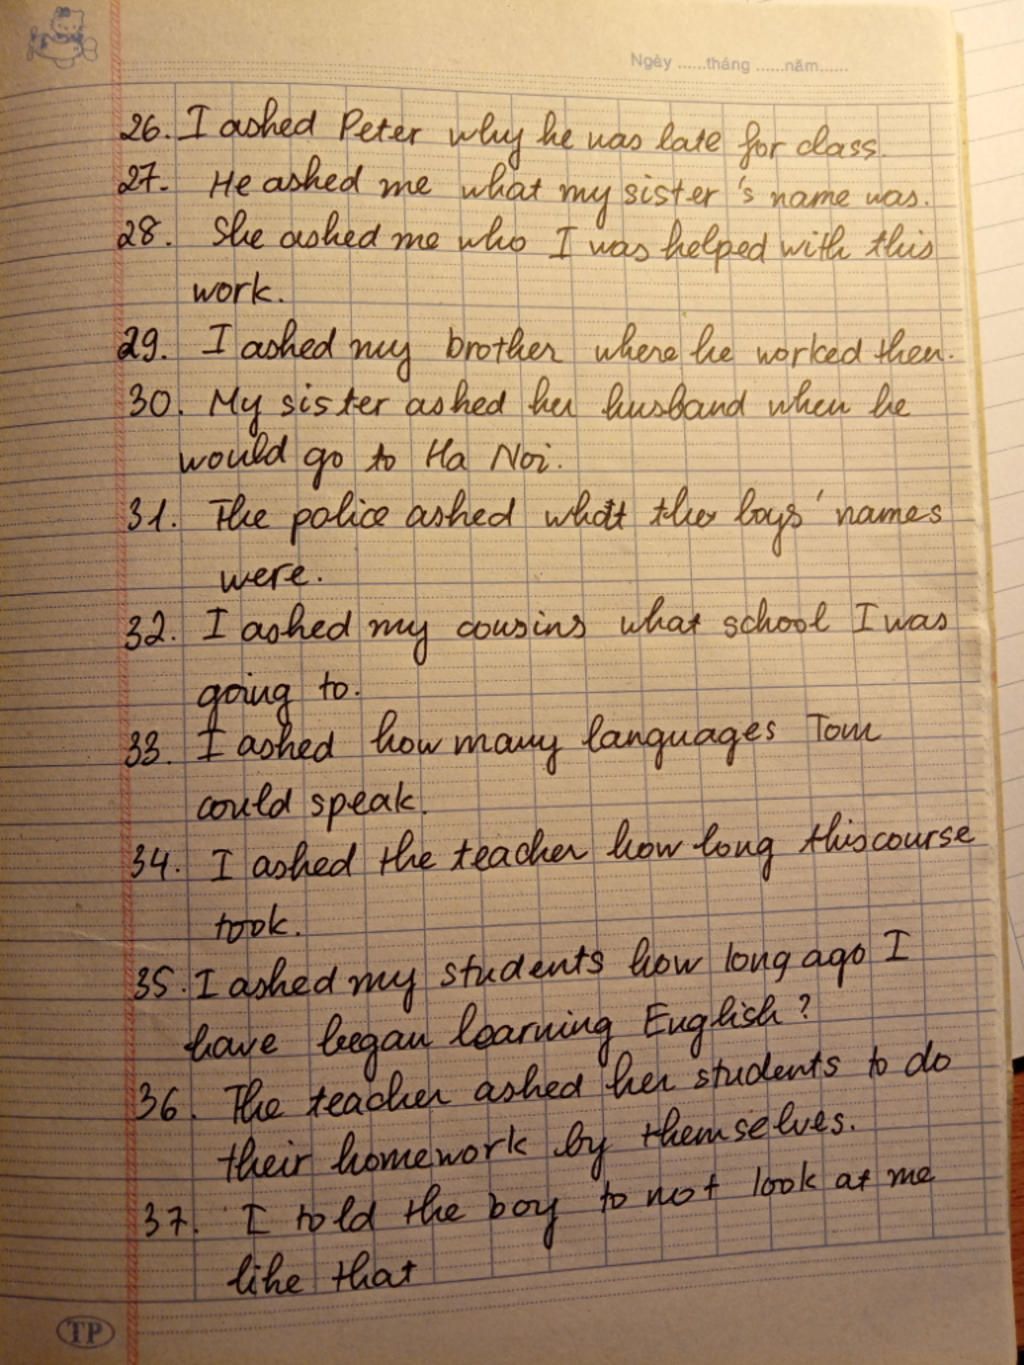 Ngày ......tháng ......năm......
26. I asked Peter why he was late for class.
27. He asked me what my sister's name was.
28. She asked me who I was helped with this
work.
29. I asked my brother where he worked then.
30. My sister asked her husband when he
would go to Ha Noi.
31. The police asked what the boys' names
were.
32. I asked my cousins what school I was
going to.
33. I asked how many languages Tom
could speak.
34. I asked the teacher how long this course
took.
35. I asked my students how long ago I
have began learning English?
36. The teacher asked her students to do
their homework by themselves.
37. I told the boy to not look at me
like that
TP